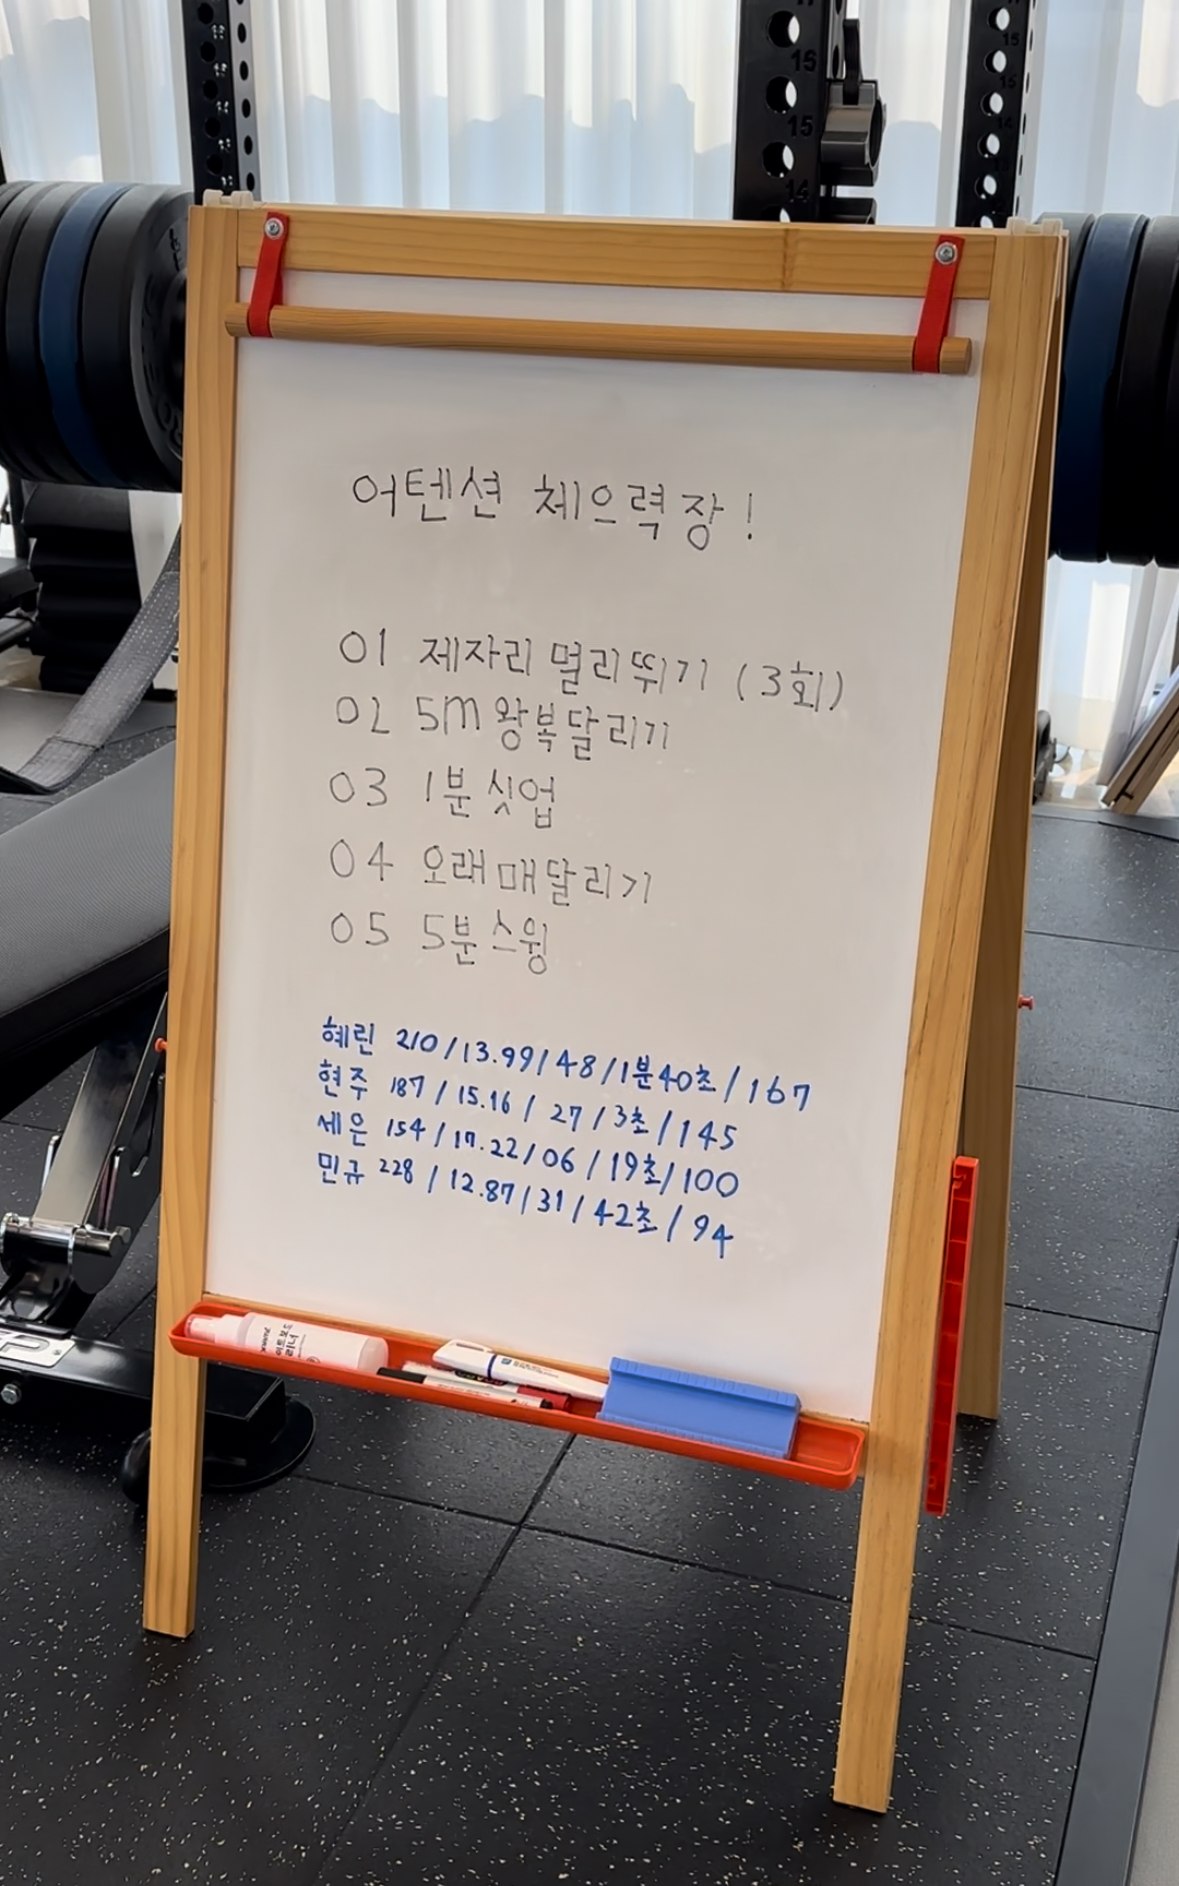 어텐션 체으력장!
01 제자리 멀리뛰기 (3회)
02 5m 왕복달리기
03 1분 싯업
04 오래매달리기
05 5분 스윙
혜린 210/13.99/48/1분40초/167
현주 187/15.16/27/3초/145
세은 154/17.22/06/19초/100
민규 228/12.87/31/42초/94
16
15
14